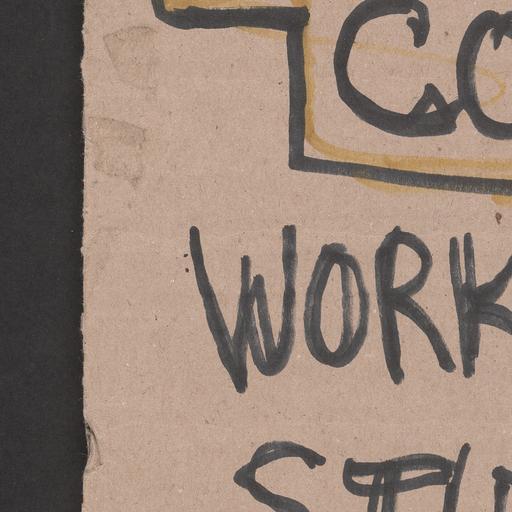 CO
WORK
STU